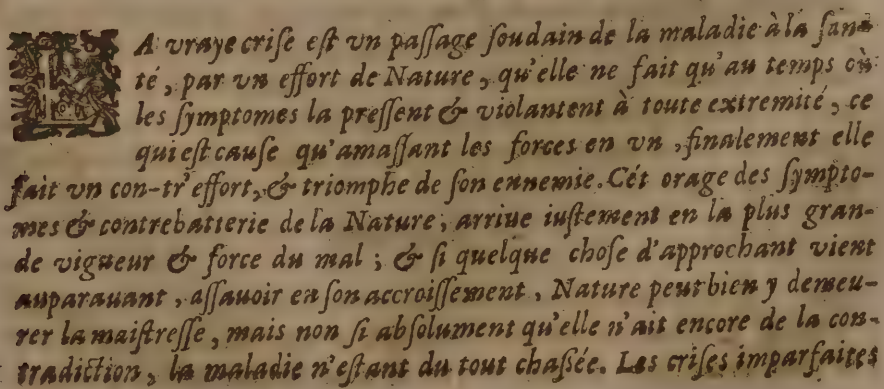 LA vraye crise est vn passage soudain de la maladie à la san-
té, par vn effort de Nature, qu'elle ne fait qu'au temps où
les symptomes la pressent & violantent à toute extremité, ce
qui est cause qu'amassant les forces en vn, finalement elle
fait vn con-tr'effort, & triomphe de son ennemie. Cét orage des sympto-
mes & contrebatterie de la Nature, arriue iustement en la plus gran-
de vigueur & force du mal ; & si quelque chose d'approchant vient
auparauant, assauoir en son accroissement, Nature peut bien y demeu-
rer la maistresse, mais non si absolument qu'elle n'ait encore de la con-
tradiction, la maladie n'estant du tout chassée. Les crises imparfaites